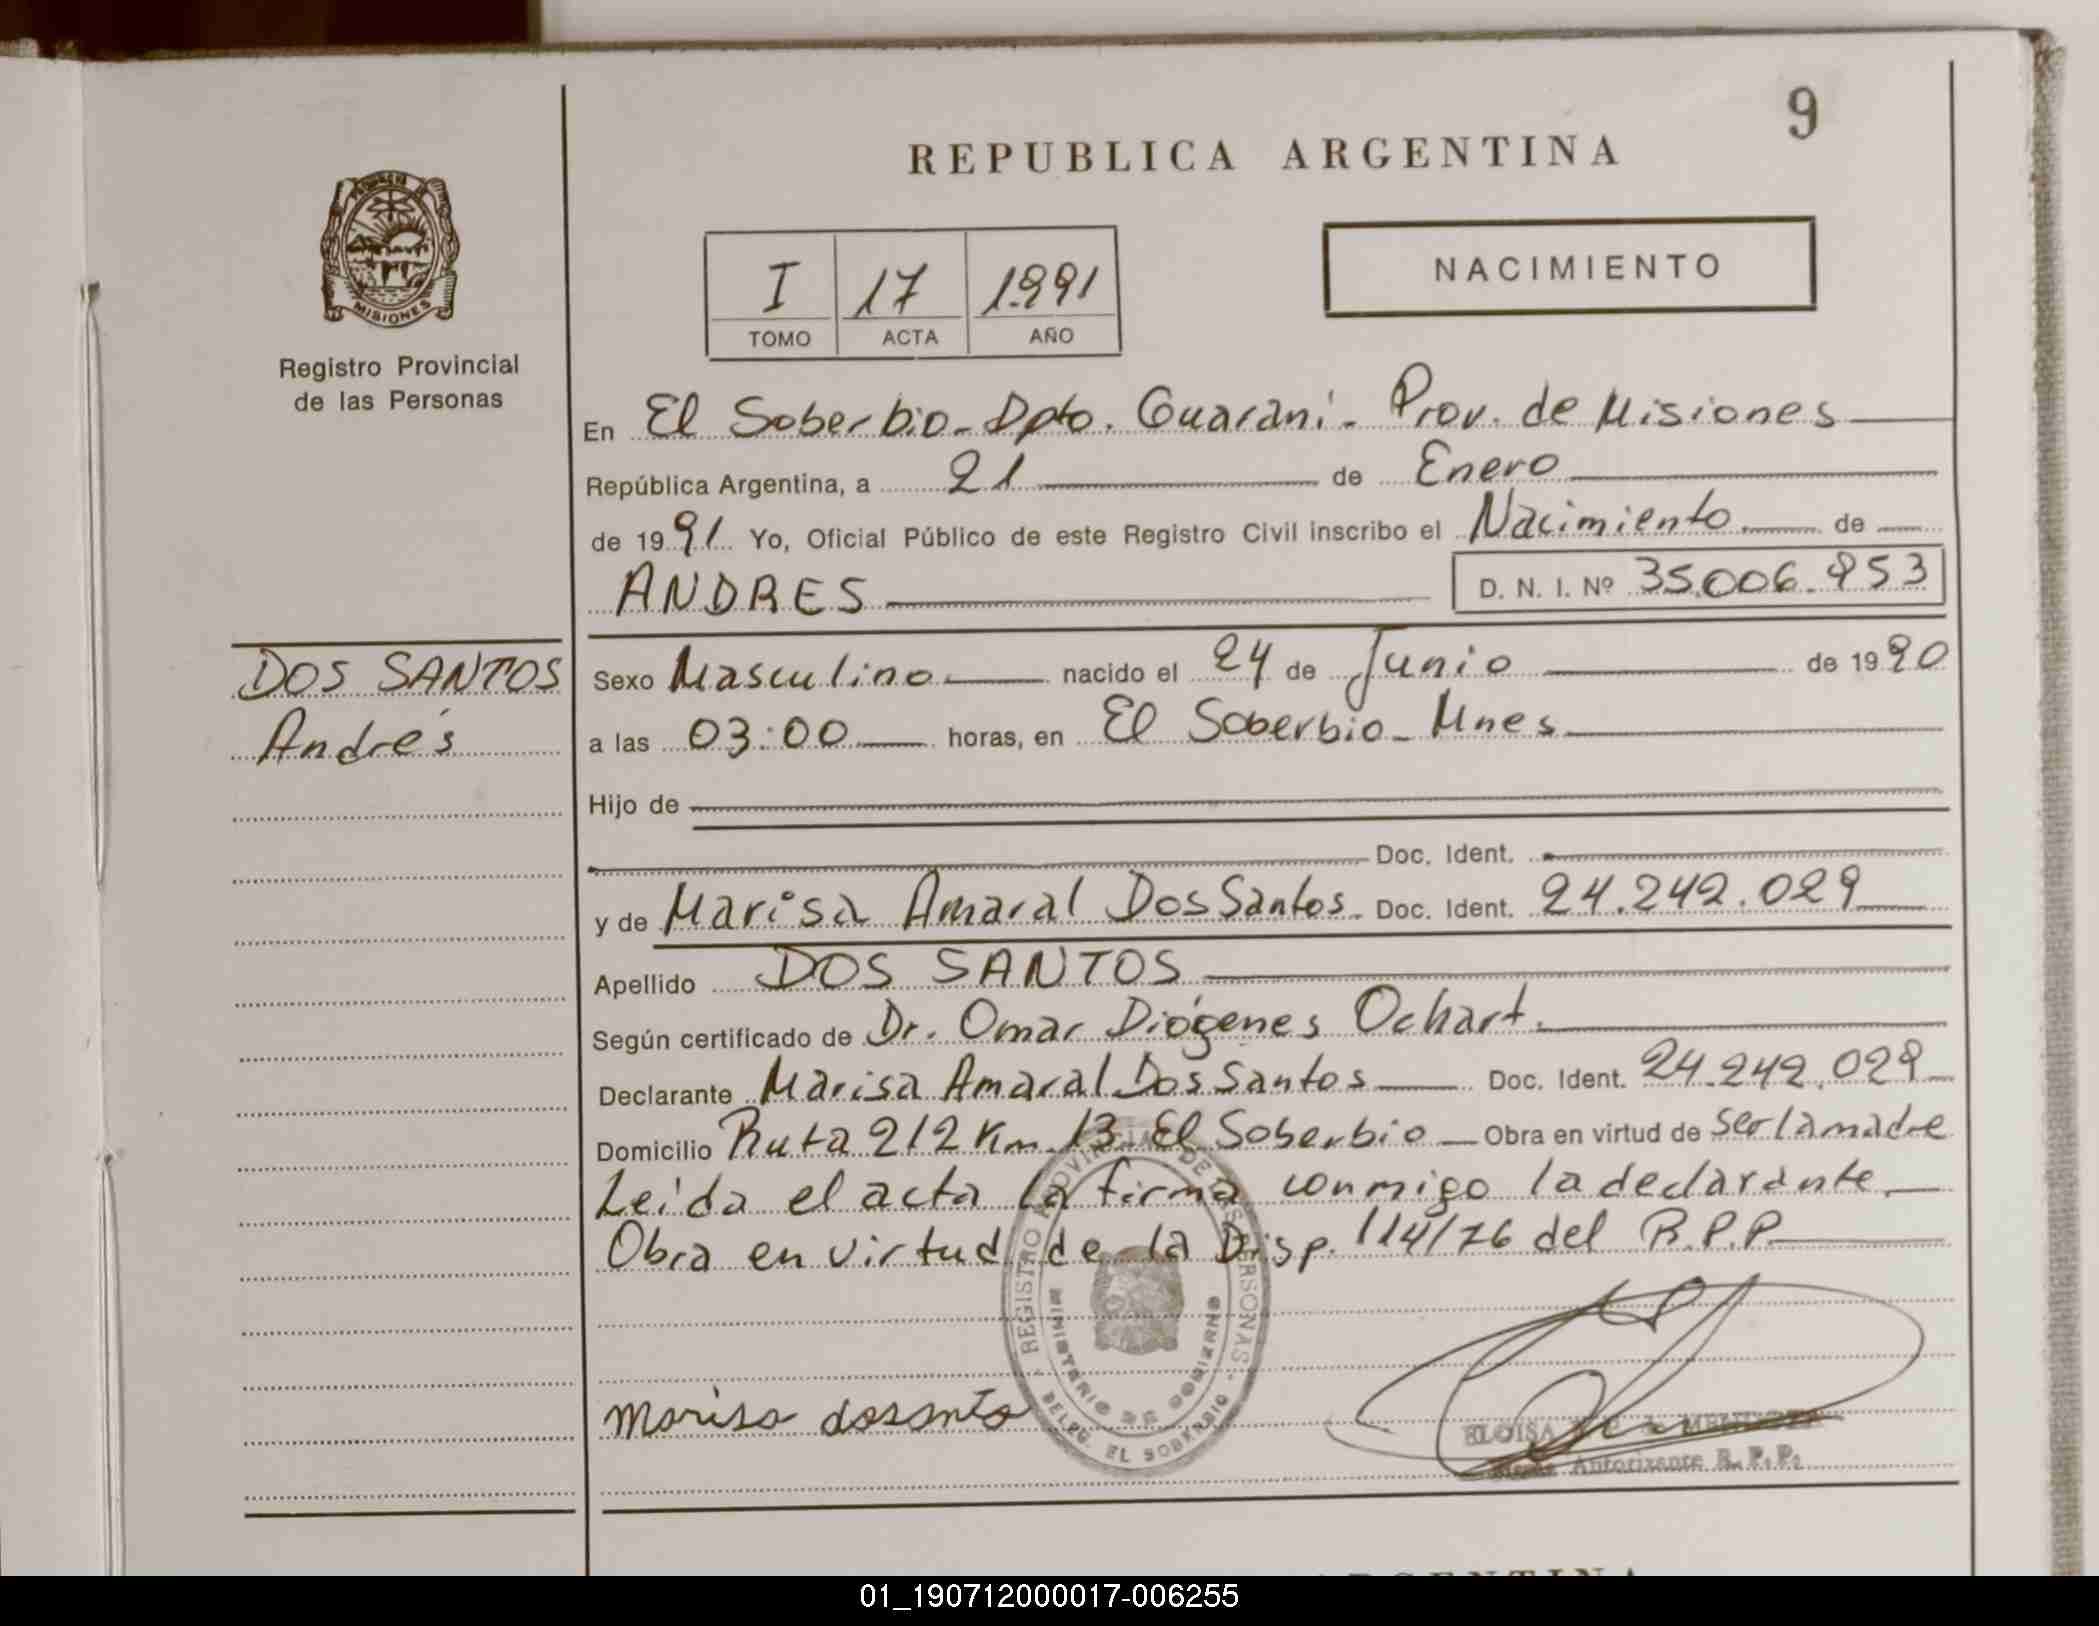 9
REPUBLICA ARGENTINA
PROVINCIA DE
MISIONES
Registro Provincial
de las Personas
I 17 1.991
TOMO ACTA AÑO
NACIMIENTO
En El Soberbio - Dpto. Guaraní - Prov. de Misiones
República Argentina, a 21 de Enero
de 1991 Yo, Oficial Público de este Registro Civil inscribo el Nacimiento de
ANDRES D. N. I. Nº 35.006.953
DOS SANTOS
Andrés
Sexo Masculino nacido el 24 de Junio de 1990
a las 03:00 horas, en El Soberbio - Mnes
Hijo de
Doc. Ident.
y de Marisa Amaral Dos Santos. Doc. Ident. 24.242.029
Apellido DOS SANTOS
Según certificado de Dr. Omar Diógenes Ochart.
Declarante Marisa Amaral Dos Santos Doc. Ident. 24.242.029
Domicilio Ruta 212 Km. 13 El Soberbio Obra en virtud de ser la madre
Leida el acta la firma conmigo la declarante.
Obra en virtud de la Disp. 114/76 del R.P.P.
REGISTRO PROVINCIAL DE LAS PERSONAS
MINISTERIO DE GOBIERNO
DELEG. EL SOBERBIO
Marisa dosanto
ELOISA de
Autorizante R. P. P.
ARGENTINA
01_190712000017-006255